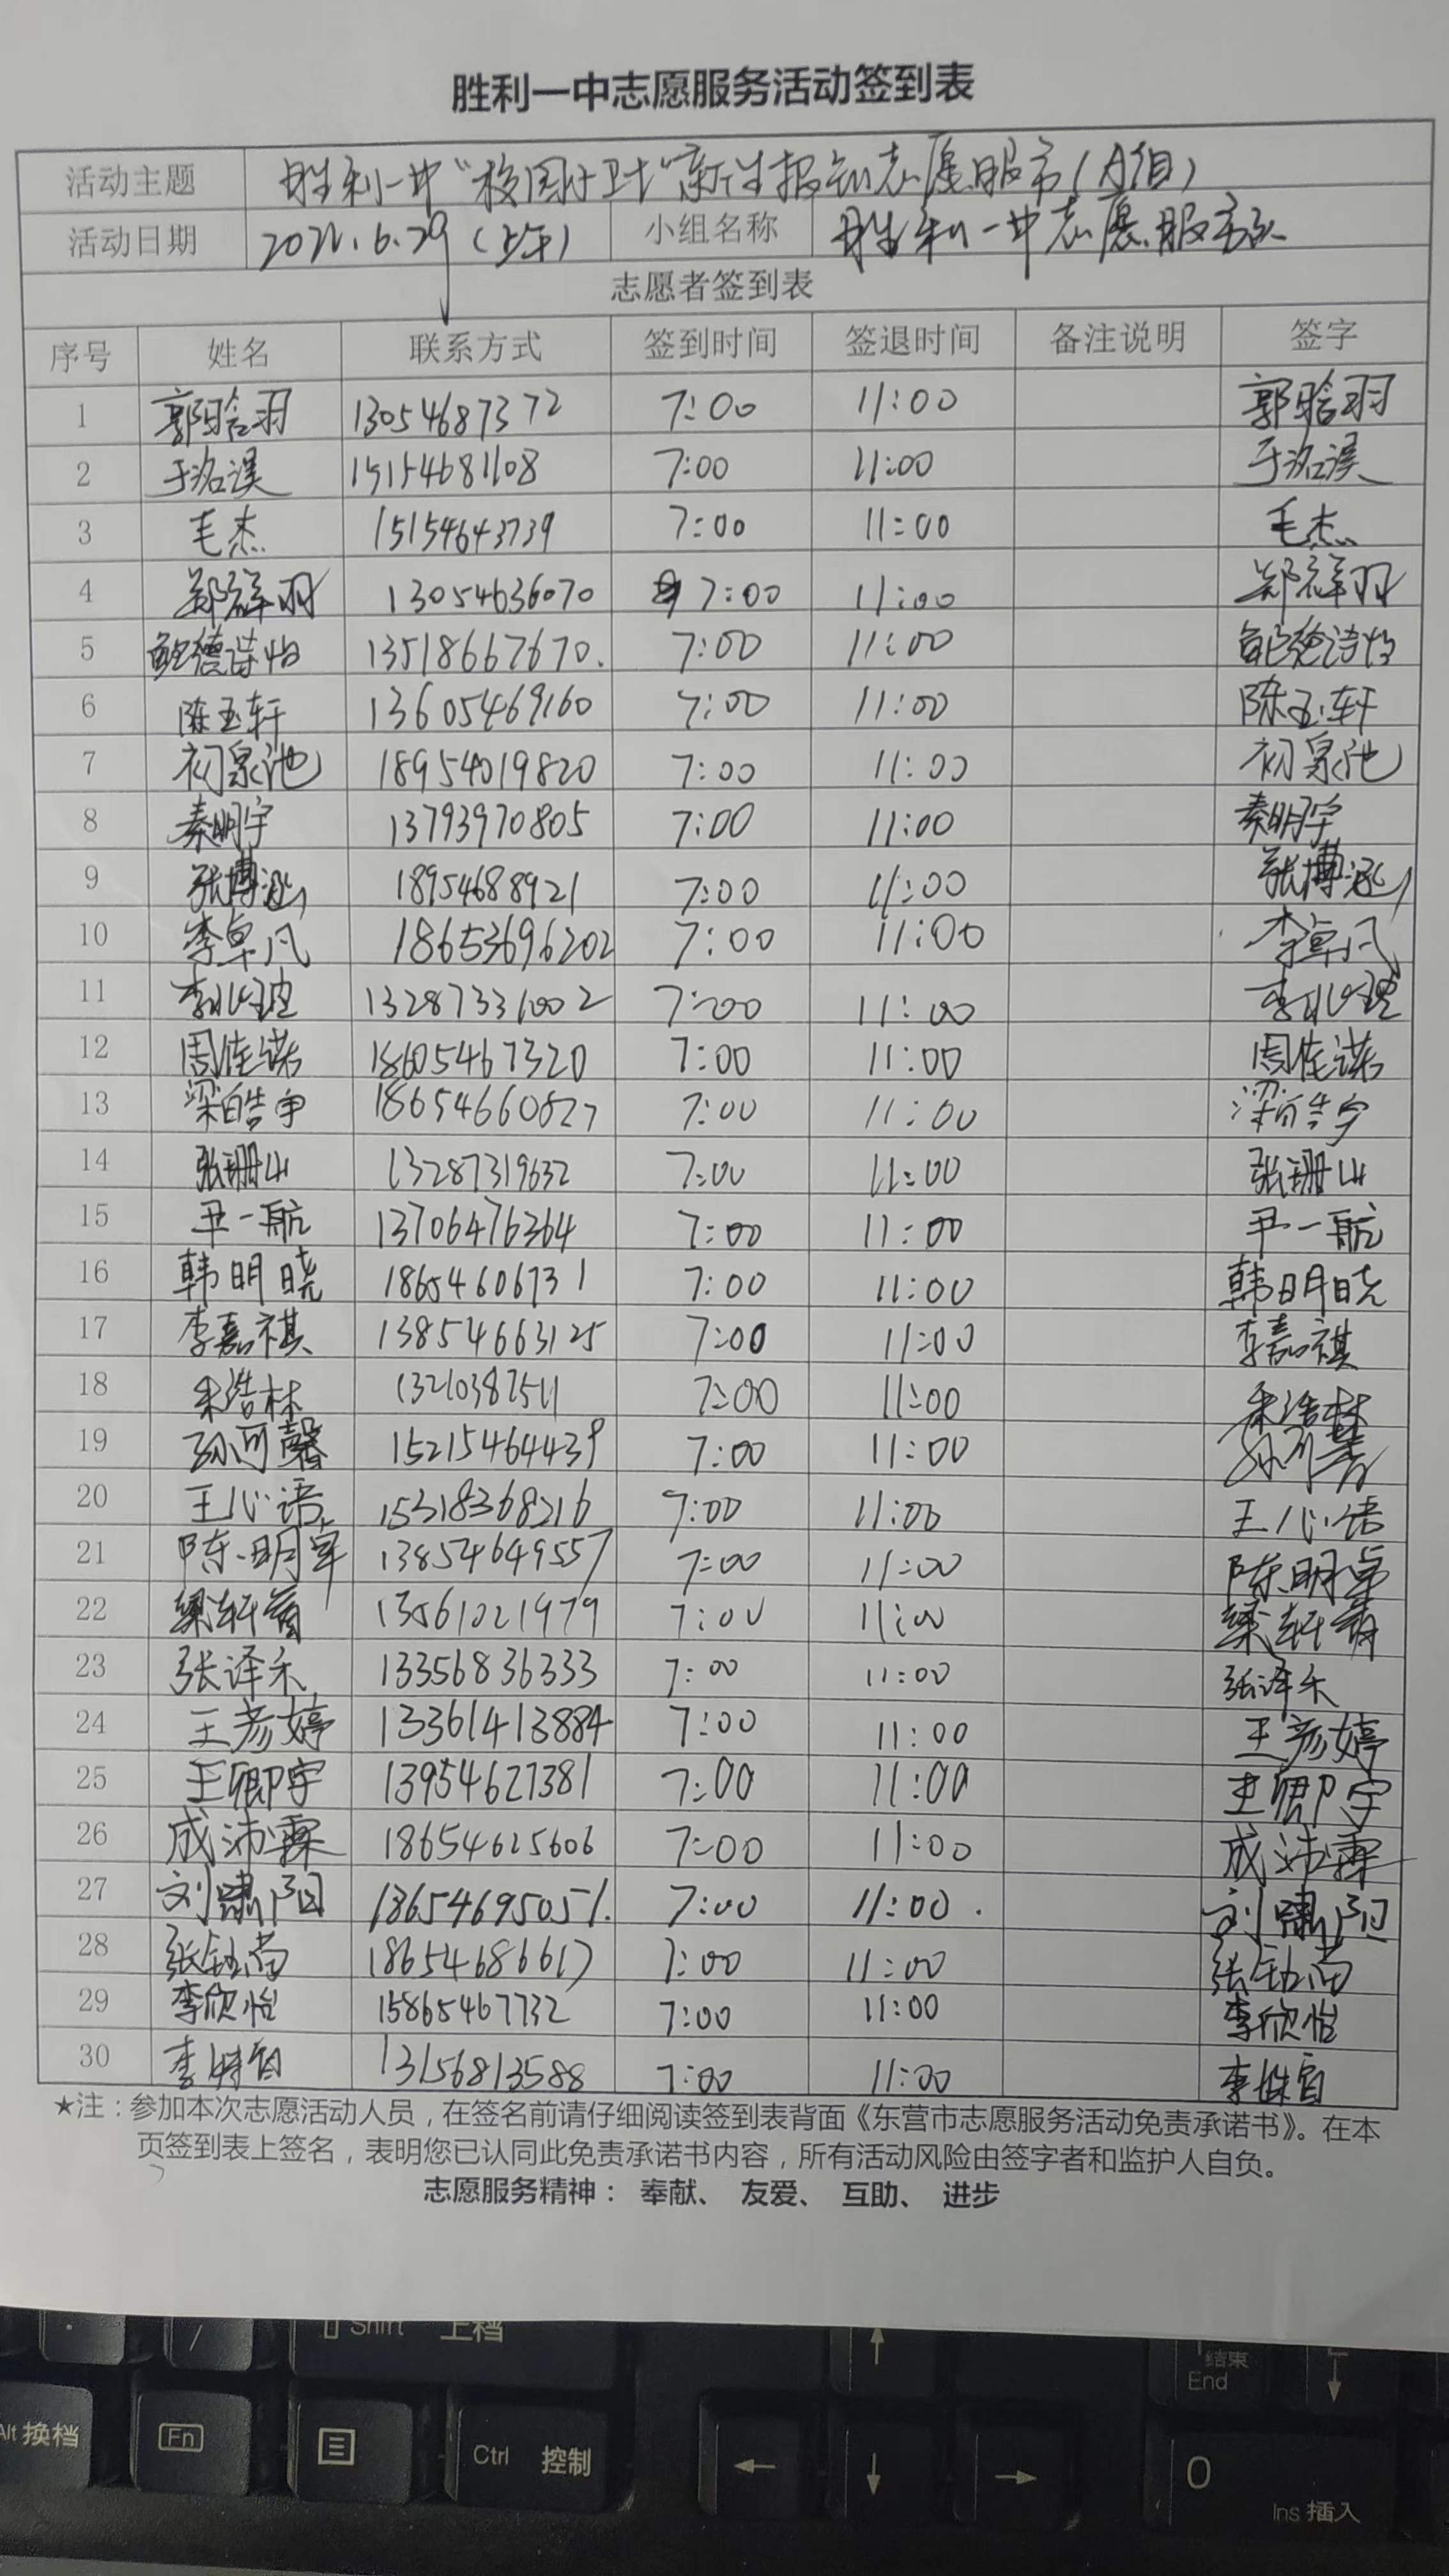 胜利一中志愿服务活动签到表
活动主题 胜利一中“校园小卫士”新生报到志愿服务(A组)
活动日期 2022.6.29(上午) 小组名称 胜利一中志愿服务队
志愿者签到表
序号 姓名 联系方式 签到时间 签退时间 备注说明 签字
1 郭晗羽 13054687372 7:00 11:00 郭晗羽
2 于洺溪 15154681108 7:00 11:00 于洺溪
3 毛杰 15154643739 7:00 11:00 毛杰
4 郑祥羽 13054636070 7:00 11:00 郑祥羽
5 鲍德诗怡 13518667670. 7:00 11:00 鲍德诗怡
6 陈玉轩 13605469160 7:00 11:00 陈玉轩
7 初泉池 18954019820 7:00 11:00 初泉池
8 秦明宇 13793970805 7:00 11:00 秦明宇
9 张博 18954688921 7:00 11:00 张博
10 李卓凡 18653696202 7:00 11:00 李卓凡
11 李 13287331002 7:00 11:00 李
12 周佳诺 18605467320 7:00 11:00 周佳诺
13 梁皓 18654660827 7:00 11:00 梁皓
14 张珊山 13287319632 7:00 11:00 张珊山
15 尹一航 13706476364 7:00 11:00 尹一航
16 韩明晓 18654606731 7:00 11:00 韩明晓
17 李嘉祺 13854663125 7:00 11:00 李嘉祺
18 浩林 13210387511 7:00 11:00 浩林
19 孙可馨 15215464439 7:00 11:00 孙可馨
20 王心语 15318368216 7:00 11:00 王心语
21 陈明卓 13854649557 7:00 11:00 陈明卓
22 梁轩 13561021979 7:00 11:00 梁轩
23 张泽禾 13356836333 7:00 11:00 张泽禾
24 王彦婷 13361413884 7:00 11:00 王彦婷
25 王卿宇 13954627381 7:00 11:00 王卿宇
26 成沛霖 18654625606 7:00 11:00 成沛霖
27 刘啸阳 18654695051. 7:00 11:00 . 刘啸阳
28 张钰尚 18654686617 7:00 11:00 张钰尚
29 李欣怡 15865467732 7:00 11:00 李欣怡
30 李 13156813588 7:00 11:00 李
★注：参加本次志愿活动人员，在签名前请仔细阅读签到表背面《东营市志愿服务活动免责承诺书》。在本
页签到表上签名，表明您已认同此免责承诺书内容，所有活动风险由签字者和监护人自负。
志愿服务精神： 奉献、 友爱、 互助、 进步
Shift 上档
结束
End
Alt 换档
Fn
Ctrl 控制
0
Ins 插入